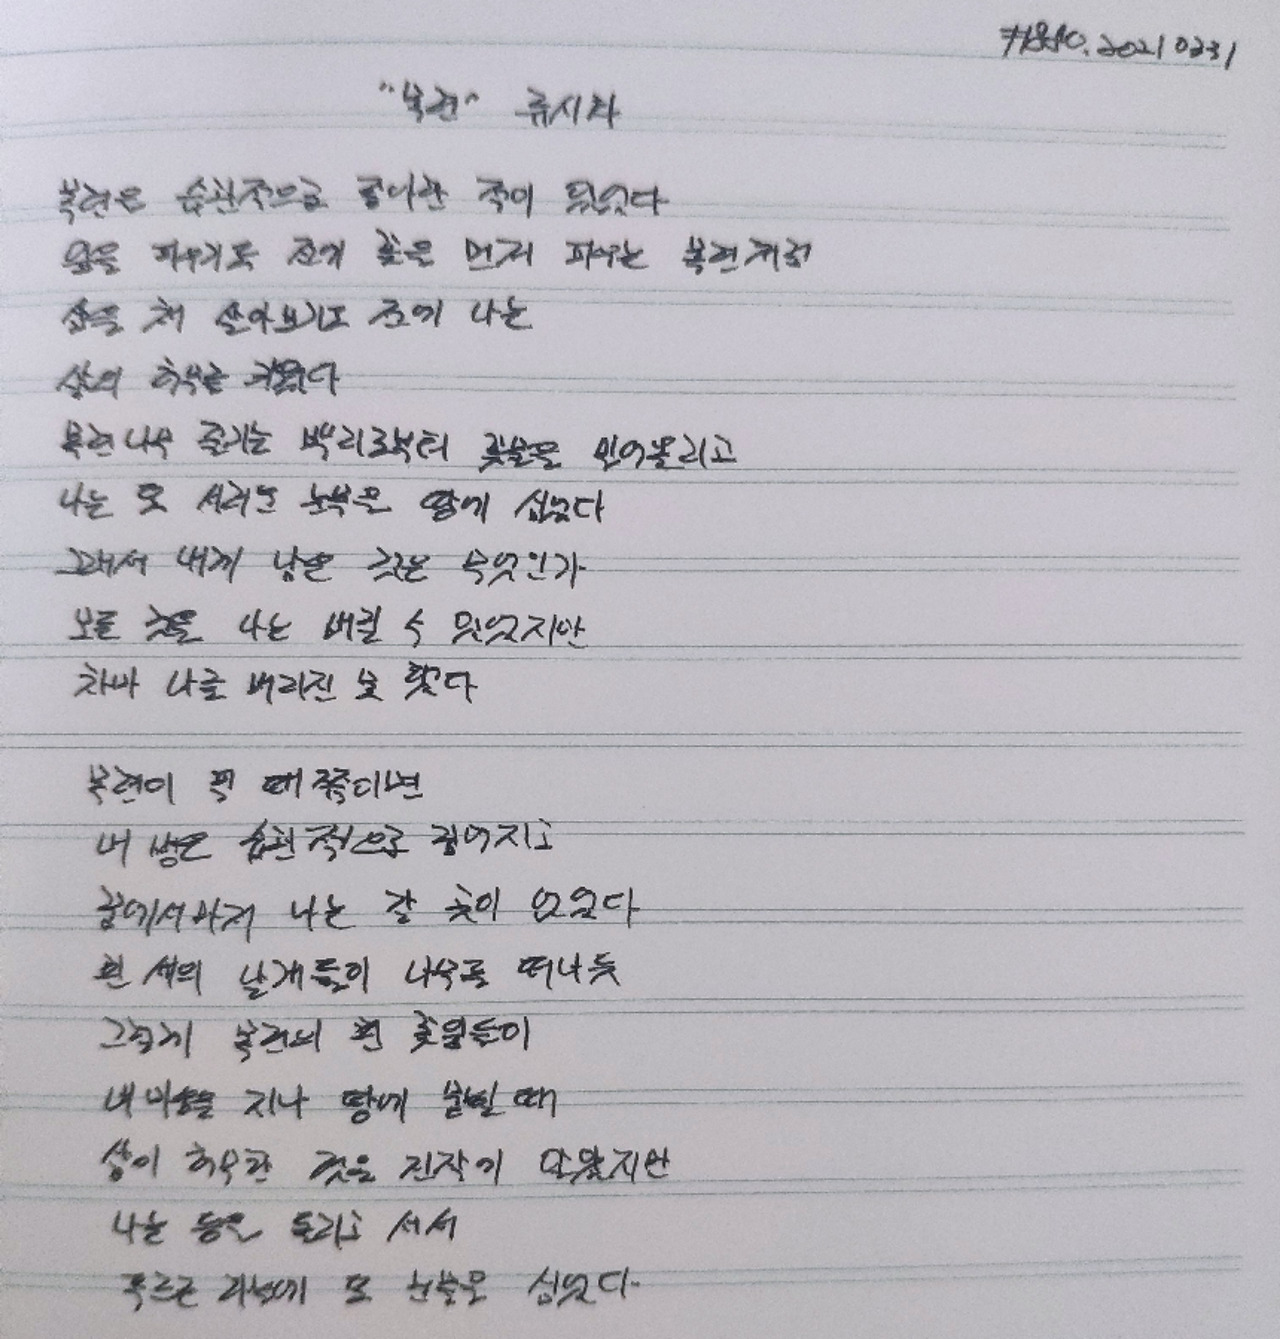 20210231
"목련" 류시화
목련은 습관적으로 좋아한 적이 있었다
잎을 피우기도 전에 꽃을 먼저 피우는 목련처럼
삶을 채 살아보기도 전에 나는
삶의 허무를 키웠다
목련나무 줄기는 뿌리로부터 꽃물을 밀어올리고
나는 또 서러운 눈물을 땅에 심었다
그래서 내게 남은 것은 무엇인가
모든 것을 나는 버릴 수 있었지만
차마 나를 버리진 못 했다
목련이 필 때쯤이면
내 병은 습관적으로 깊어지고
꿈에서마저 나는 갈 곳이 없었다
흰 새의 날개들이 나무를 떠나듯
그렇게 목련의 흰 꽃잎들이
내 마음을 지나 땅에 묻힐 때
삶이 허무한 것을 진작에 알았지만
나는 등을 돌리고 서서
푸르른 하늘에 또 눈물을 심었다